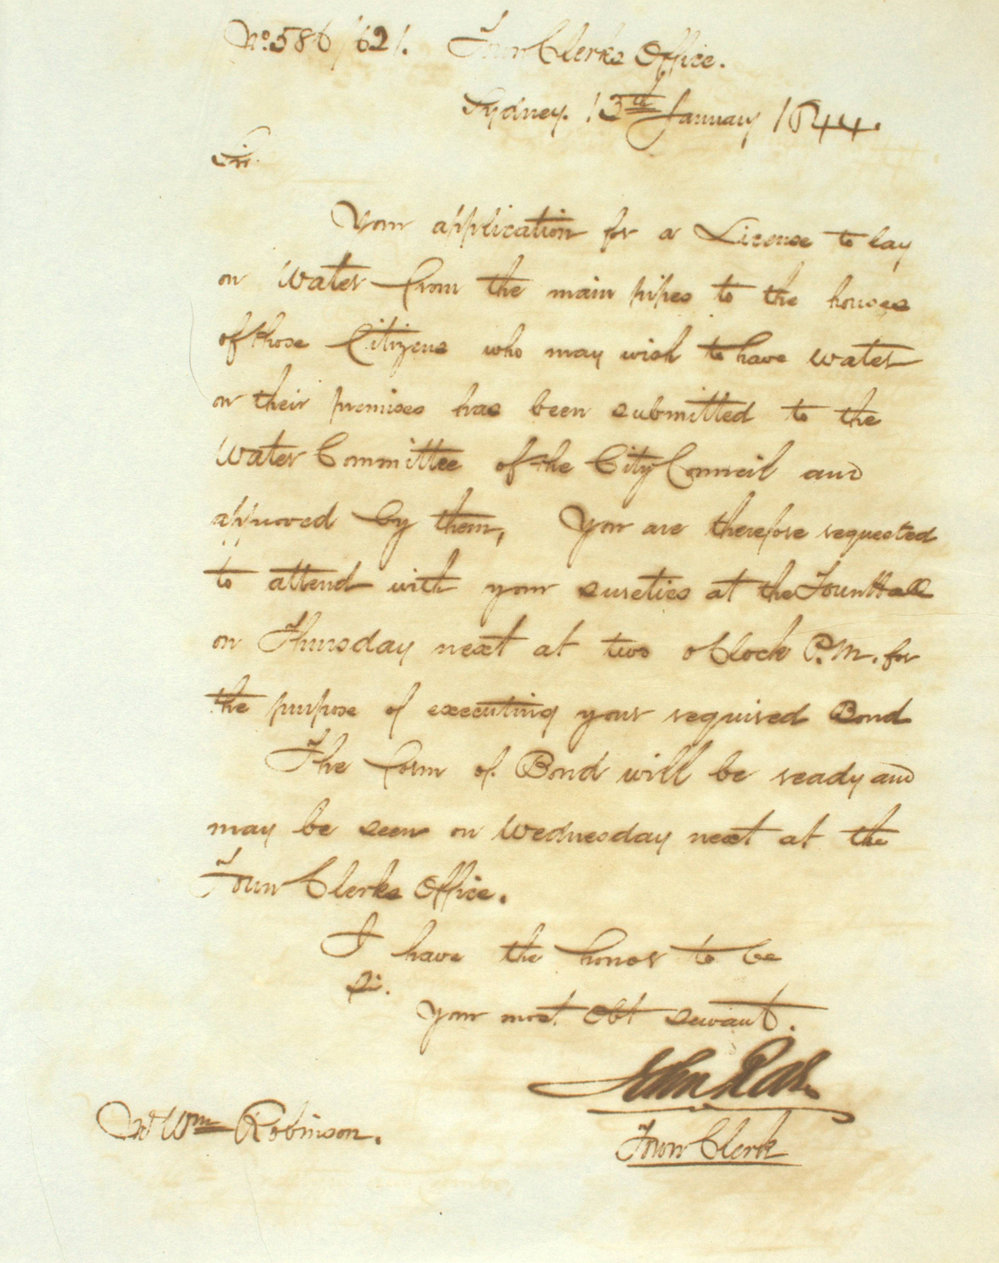 No. 586/621. Town Clerks Office.
Sydney. 13th January 1844.
Sir.
Your application for a License to lay
on Water from the main pipes to the houses
of those Citizens who may wish to have water
on their premises has been submitted to the
Water Committee of the City Council and
approved by them, You are therefore requested
to attend with your sureties at the Town Hall
on Thursday next at two oClock P.M. for
the purpose of executing your required Bond
The form of Bond will be ready and
may be seen on Wednesday next at the
Town Clerks Office.
I have the honor to be
Sir.
Your most Obt servant.
John Rae
Town Clerk
Mr Wm Robinson.